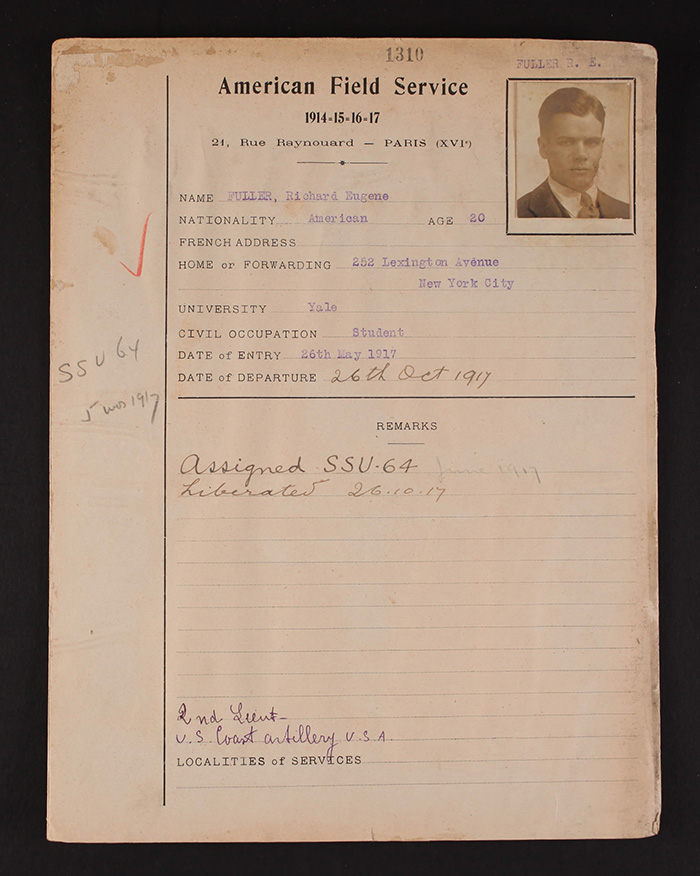 1310
FULLER R. E.
American Field Service
1914=15=16=17
21, Rue Raynouard — PARIS (XVIᵉ)
NAME FULLER, Richard Eugene
NATIONALITY American AGE 20
FRENCH ADDRESS
HOME or FORWARDING 252 Lexington Avenue
New York City
UNIVERSITY Yale
CIVIL OCCUPATION Student
DATE of ENTRY 26th May 1917
DATE of DEPARTURE 26th Oct 1917
SSU 64
5 1917
REMARKS
Assigned SSU-64 June 1917
Liberated 26.10.17
2nd Lieut-
U.S. Coast artillery U S A.
LOCALITIES of SERVICES